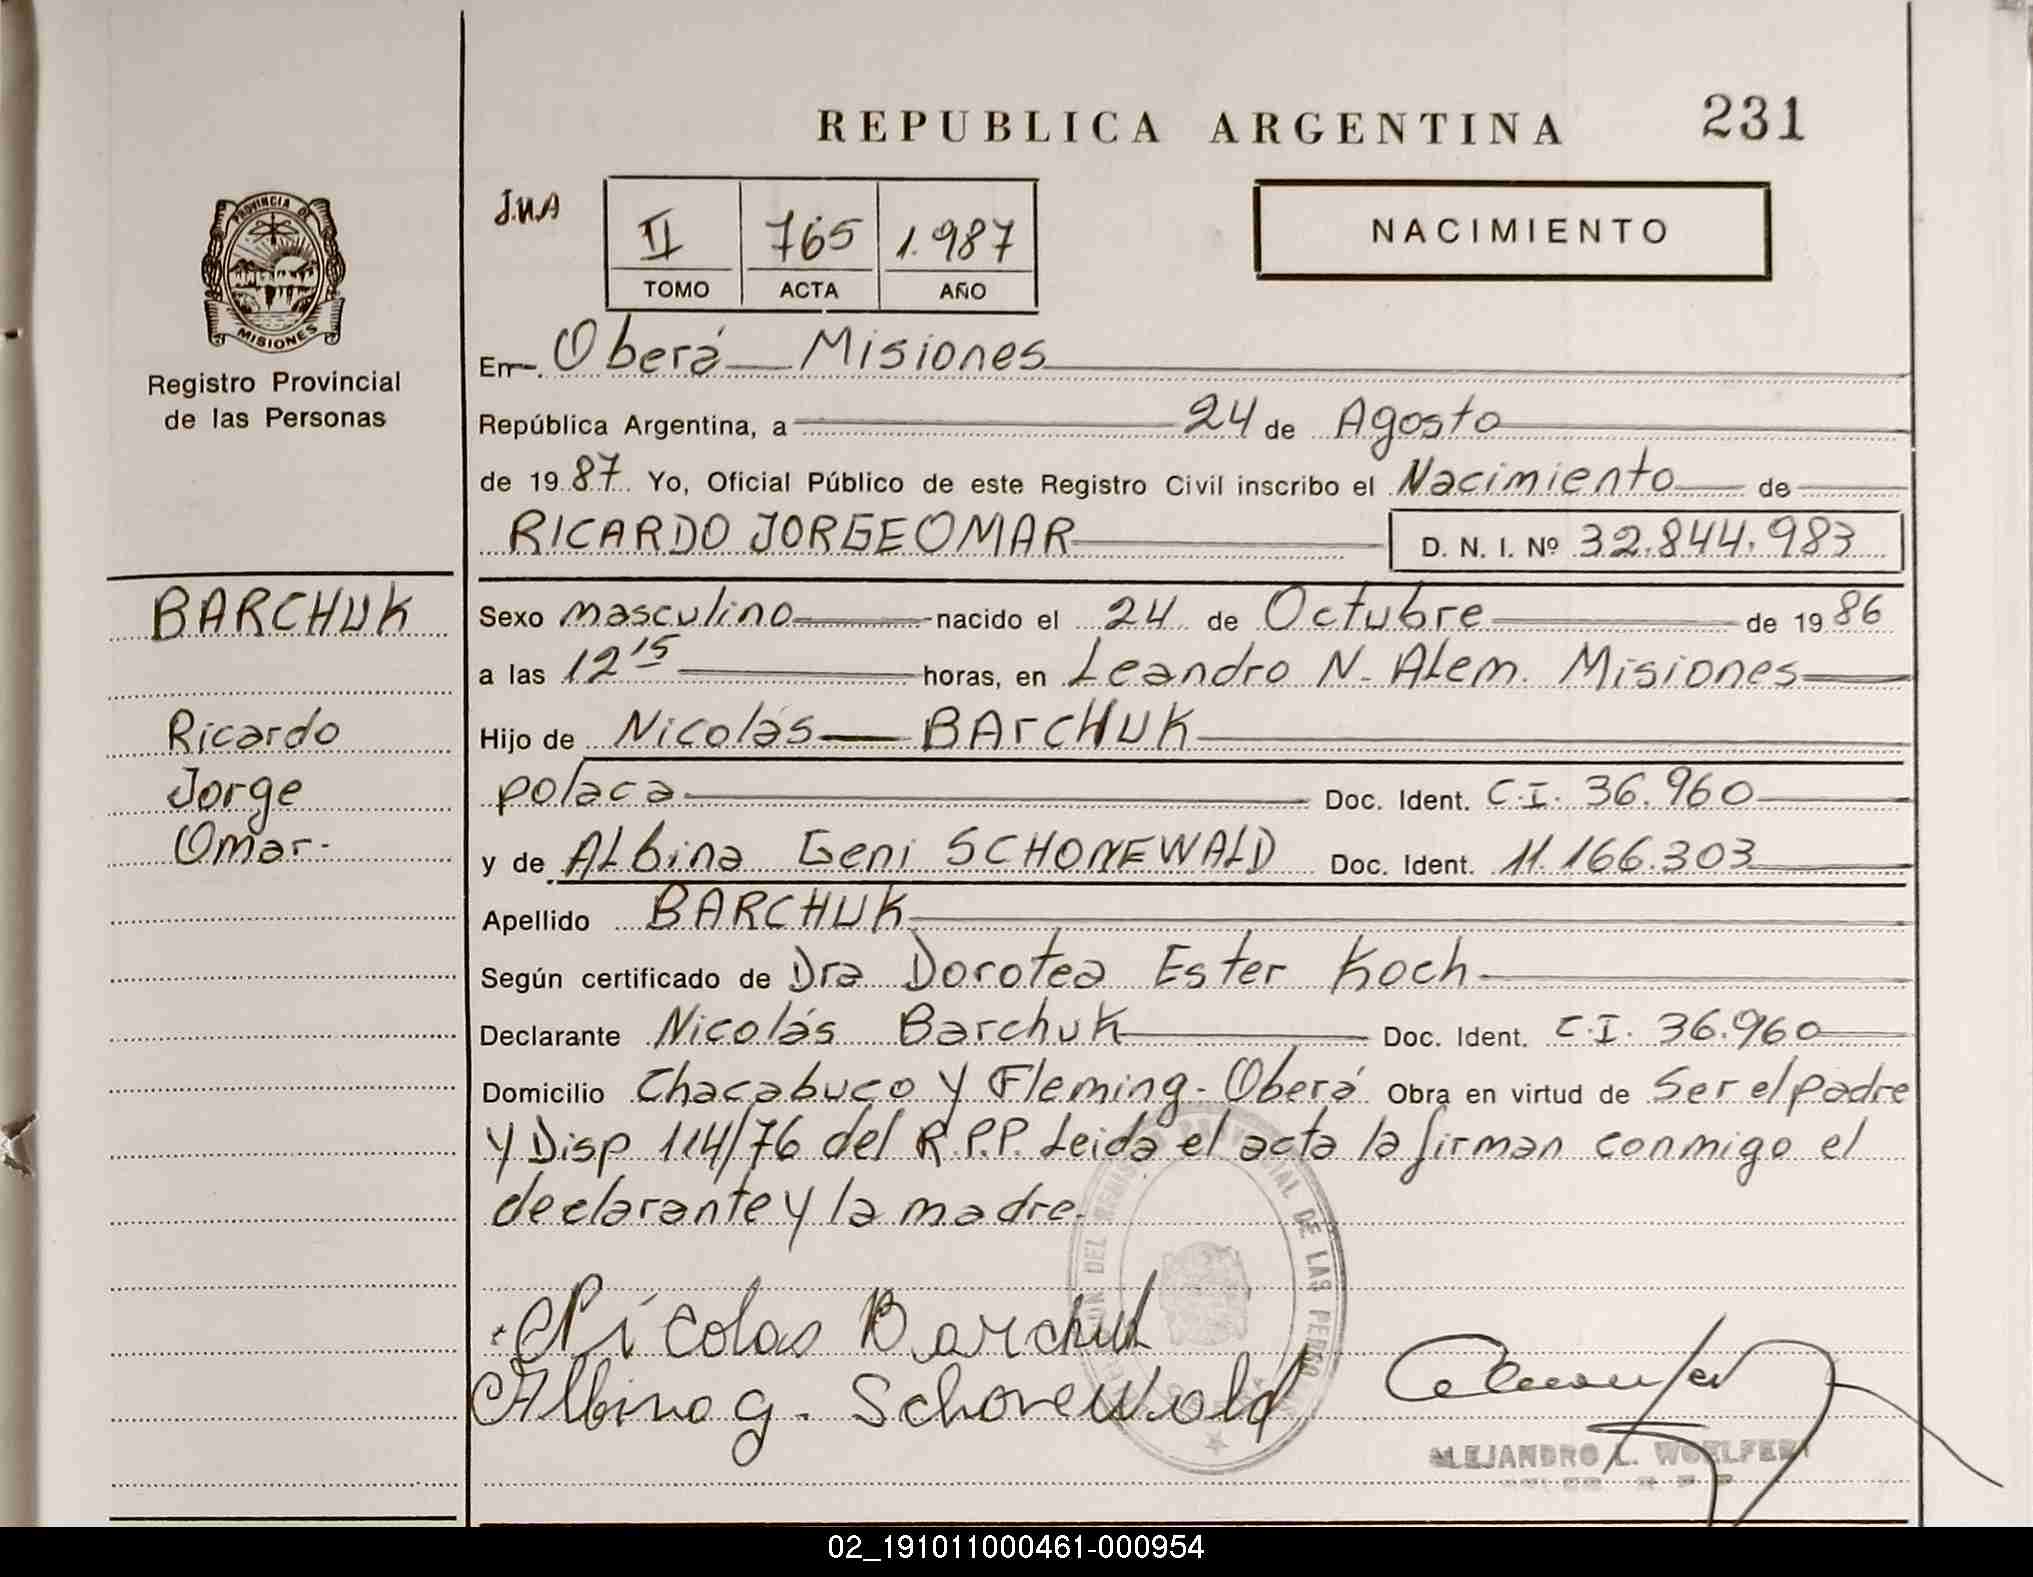 REPUBLICA ARGENTINA 231
PROVINCIA DE
MISIONES
Registro Provincial
de las Personas
J.N.A
II 765 1.987
TOMO ACTA AÑO
NACIMIENTO
En Oberá Misiones
República Argentina, a 24 de Agosto
de 1987 Yo, Oficial Público de este Registro Civil inscribo el Nacimiento de
RICARDO JORGE OMAR D. N. I. Nº 32.844.983
BARCHUK
Ricardo
Jorge
Omar.
Sexo masculino nacido el 24 de Octubre de 1986
a las 12 15 horas, en Leandro N. Alem. Misiones
Hijo de Nicolás BARCHUK
polaca Doc. Ident. C.I. 36.960
y de Albina Geni SCHONEWALD Doc. Ident. 11.166.303
Apellido BARCHUK
Según certificado de Dra Dorotea Ester Koch
Declarante Nicolás Barchuk Doc. Ident. C.I. 36.960
Domicilio Chacabuco y Fleming - Oberá Obra en virtud de Ser el padre
y Disp 114/76 del R.P.P. Leida el acta la firman conmigo el
declarante y la madre.
Nicolas Barchuk
Albina G. Schonewald
DE LAS
ALEJANDRO L.
02_191011000461-000954